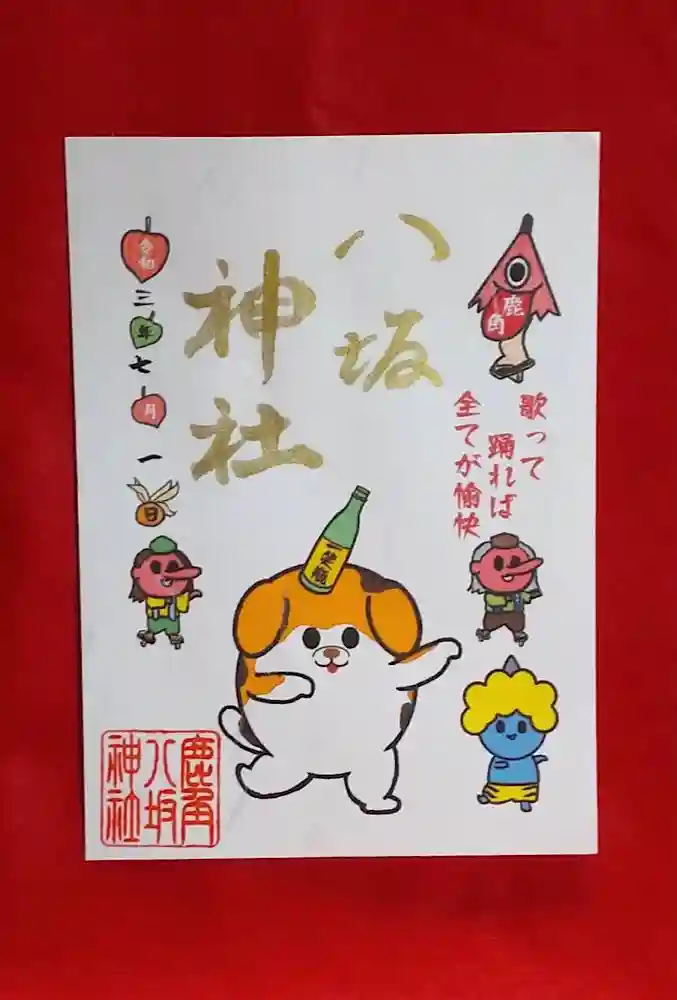 鹿角
歌って
踊れば
全てが愉快
八坂
神社
令和三年七月一日
一笑瓶
鹿角
八坂
神社